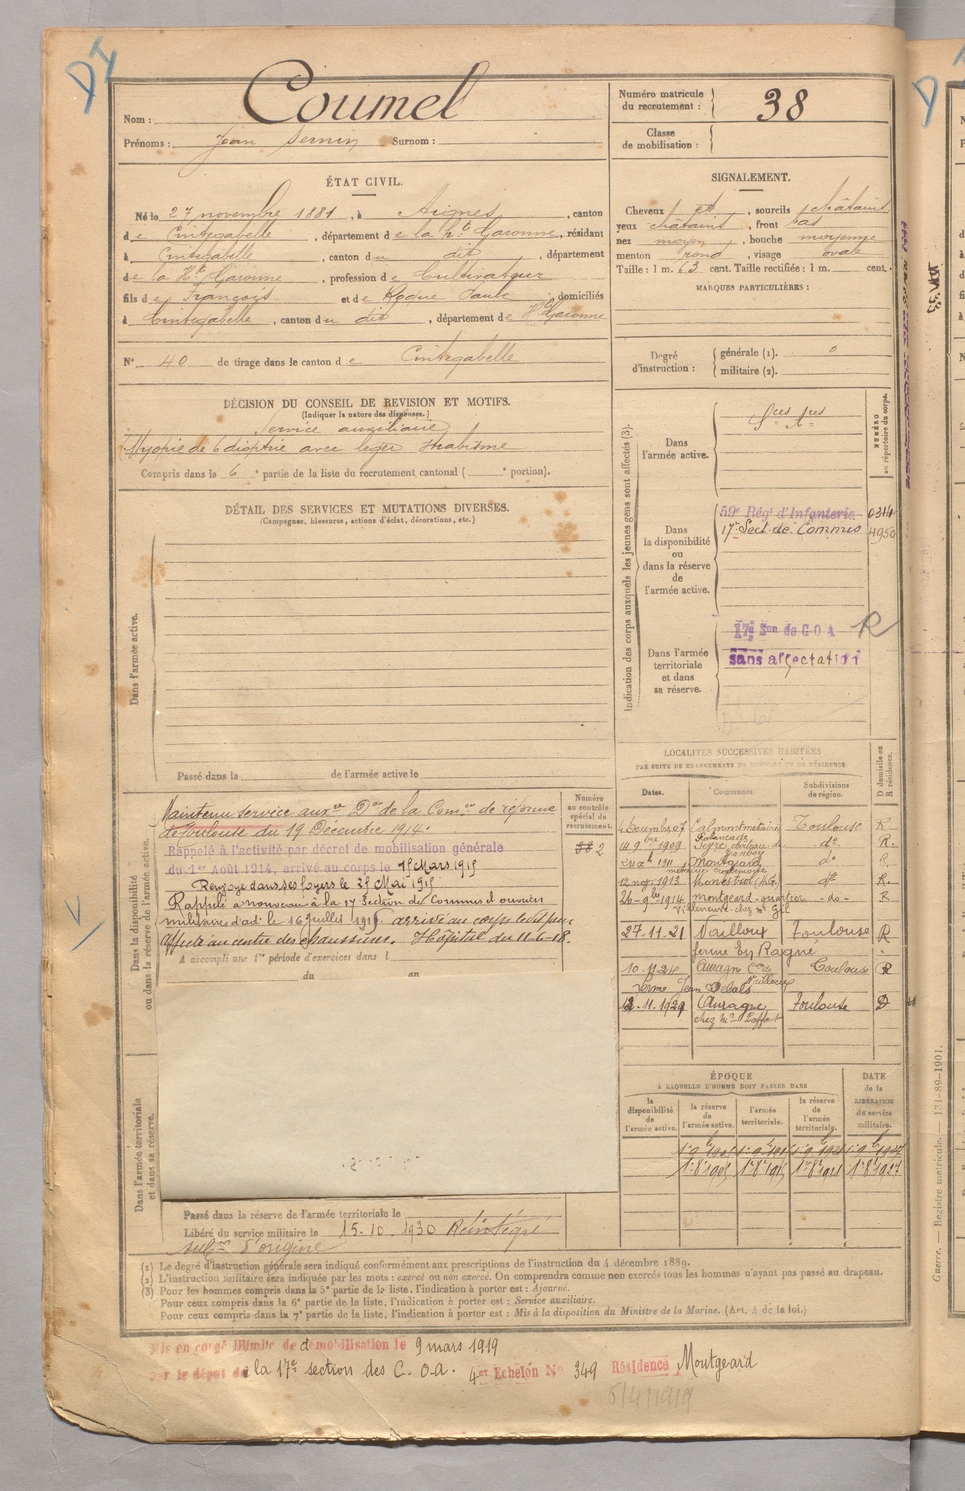 Nom : Coumel
Prénoms : Jean Sernin Surnom :
Numéro matricule du recrutement : 38
Classe de mobilisation :
ÉTAT CIVIL.
Né le 27 novembre 1881, à Aignes, canton
de Cintegabelle, département de la Hte Garonne, résidant
à Cintegabelle, canton du dit, département
de la Hte Garonne, profession de Cultivateur
fils de François et de Roque Paule domiciliés
à Cintegabelle, canton du dit, département de Hte Garonne
N° 40 de tirage dans le canton de Cintegabelle
SIGNALEMENT.
Cheveux et, sourcils châtains
yeux châtains, front bas
nez moyen, bouche moyenne
menton rond, visage ovale
Taille : 1 m. 63 cent. Taille rectifiée : 1 m. cent.
MARQUES PARTICULIÈRES :
Degré d'instruction :
générale (1). 0
militaire (2).
DÉCISION DU CONSEIL DE REVISION ET MOTIFS.
(Indiquer la nature des dispenses.)
Service auxiliaire
Myopie de 6 dioptrie avec leger strabisme
Compris dans la 6e partie de la liste du recrutement cantonal ( e portion).
DÉTAIL DES SERVICES ET MUTATIONS DIVERSES.
(Campagnes, blessures, actions d'éclat, décorations, etc.)
Dans l'armée active.
Passé dans la de l'armée active le
Indication des corps auxquels les jeunes gens sont affectés (3).
NUMÉRO au répertoire du corps.
Dans l'armée active.
Sces Ares
Dans la disponibilité ou dans la réserve de l'armée active.
59e Régt d'Infanterie 0314
17e Sect. de Commis 4950
Dans l'armée territoriale et dans sa réserve.
17e Son de C O A R
sans affectation
Dans la disponibilité ou dans la réserve de l'armée active.
Numéro au contrôle spécial du recrutement.
2
Maintenu service auxre Don de la Comon de réforme
de Toulouse du 19 Décembre 1914.
Rappelé à l'activité par décret de mobilisation générale
du 1er Août 1914, arrivé au corps le 1er Mars 1915
Renvoyé dans ses foyers le 25 Mai 1915
Rappelé à nouveau à la 17 Section de Commis et ouvriers
militaires d'ad. le 16 juillet 1915 arrivé au corps le dit jour
Affecté au centre des chaussures. Hôpital du 11-6-18.
A accompli une 1re période d'exercices dans l
du au
LOCALITÉS SUCCESSIVES HABITÉES
PAR SUITE DE CHANGEMENTS DE DOMICILE OU DE RÉSIDENCE
Dates. Communes. Subdivisions de région. D domicile ou R résidence.
Calmont Toulouse R
1909 do R.
Montgeard do R
12 nov. 1913 R.
1914 Montgeard -do- R
27-11-21 Nailloux Toulouse R
ferme En Ragne
10. 24 Auragne Toulouse R
ferme Jean Debals
12.11.1929 Auragne Toulouse D
ÉPOQUE
À LAQUELLE L'HOMME DOIT PASSER DANS
DATE de la LIBÉRATION du service militaire.
la disponibilité de l'armée active.
la réserve de l'armée active.
l'armée territoriale.
la réserve de l'armée territoriale.
Dans l'armée territoriale et dans sa réserve.
Passé dans la réserve de l'armée territoriale le
Libéré du service militaire le 15.10.1930 Réintégré
subon d'origine
(1) Le degré d'instruction générale sera indiqué conformément aux prescriptions de l'instruction du 4 décembre 1889.
(2) L'instruction militaire sera indiquée par les mots : exercé ou non exercé. On comprendra comme non exercés tous les hommes n'ayant pas passé au drapeau.
(3) Pour les hommes compris dans la 5e partie de la liste, l'indication à porter est : Ajourné.
Pour ceux compris dans la 6e partie de la liste, l'indication à porter est : Service auxiliaire.
Pour ceux compris dans la 7e partie de la liste, l'indication à porter est : Mis à la disposition du Ministre de la Marine. (Art. 4 de la loi.)
Mis en congé illimité de démobilisation le 9 mars 1919
par le dépôt de la 17e section des C.O.A. 4er Echelon N° 349 Résidence Montgeard
5/4/1919
Guerre. — Registre matricule. — 131-89-1901.